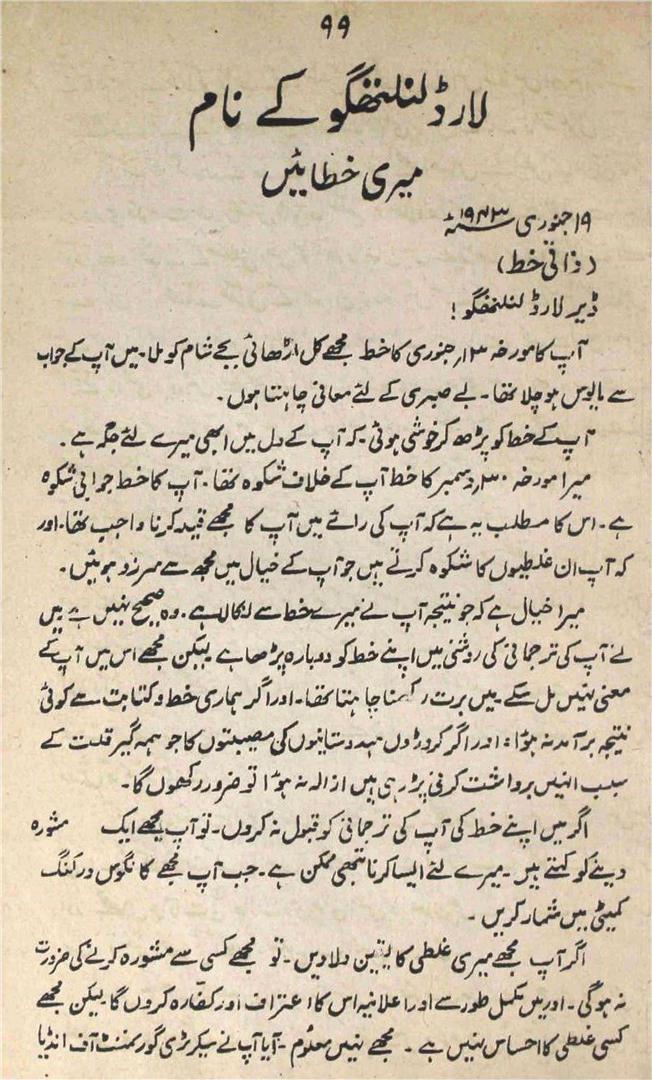 ۹۹
لارڈ لنلتھگو کے نام
میری خطائیں
۱۹ جنوری ۱۹۴۳ء
(ذاتی خط)
ڈیر لارڈ لنلتھگو!
آپ کا مورخہ ۱۳؍ جنوری کا خط مجھے کل اڑھائی بجے شام کو ملا۔ میں آپ کے جواب
سے مایوس ہو چلا تھا۔ بے صبری کے لئے معافی چاہتا ہوں۔
آپ کے خط کو پڑھ کر خوشی ہوئی۔ کہ آپ کے دل میں ابھی میرے لئے جگہ ہے۔
میرا مورخہ ۳۰؍ دسمبر کا خط آپ کے خلاف شکوہ تھا۔ آپ کا خط جوابی شکوہ
ہے۔ اس کا مطلب یہ ہے کہ آپ کی رائے میں آپ کا مجھے قید کرنا واجب تھا۔ اور
کہ آپ ان غلطیوں کا شکوہ کرتے ہیں جو آپ کے خیال میں مجھ سے سرزد ہوئیں۔
میرا خیال ہے کہ جو نتیجہ آپ نے میرے خط سے نکالا ہے۔ وہ صحیح نہیں ہے میں
نے آپ کی ترجمانی کی روشنی میں اپنے خط کو دوبارہ پڑھا ہے لیکن مجھے اس میں آپ کے
معنی نہیں مل سکے۔ میں برت رکھنا چاہتا تھا۔ اور اگر ہماری خط و کتابت سے کوئی
نتیجہ برآمد نہ ہوا؛ اور اگر کروڑوں ہندوستانیوں کی مصیبتوں کا جو ہمہ گیر قلت کے
سبب انہیں برداشت کرنی پڑ رہی ہیں ازالہ نہ ہوا تو ضرور رکھوں گا۔
اگر میں اپنے خط کی آپ کی ترجمانی کو قبول نہ کروں۔ تو آپ مجھے ایک مشورہ
دینے کو کہتے ہیں۔ میرے لئے ایسا کرنا تبھی ممکن ہے۔ جب آپ مجھے کانگرس ورکنگ
کمیٹی میں شمار کریں۔
اگر آپ مجھے میری غلطی کا یقین دلا دیں۔ تو مجھے کسی سے مشورہ کرنے کی ضرورت
نہ ہوگی۔ اور میں مکمل طور سے اور اعلانیہ اس کا اعتراف اور کفارہ کروں گا لیکن مجھے
کسی غلطی کا احساس نہیں ہے۔ مجھے نہیں معلوم۔ آیا آپ نے سیکرٹری گورنمنٹ آف انڈیا